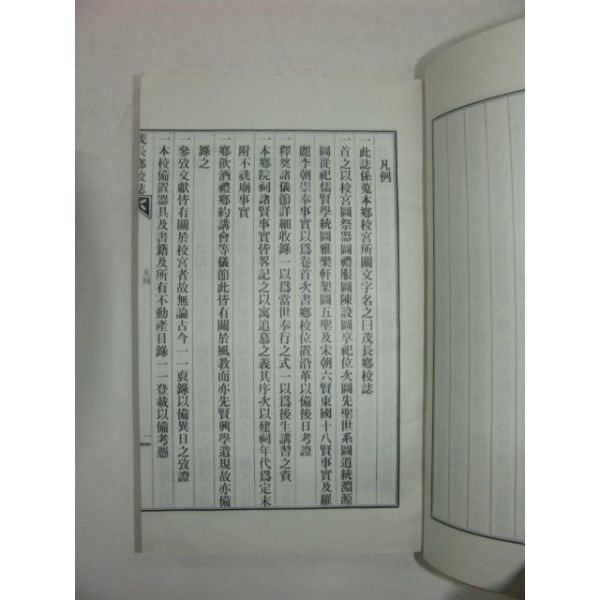 凡例
一此誌係蒐本鄕校宮所關文字名之曰茂長鄕校誌
一首之以校宮圖祭器圖禮服圖陳設圖享祀位次圖先聖世系圖道統淵源
圖從祀儒賢學統圖雅樂軒架圖五聖及宋朝六賢東國十八賢事實及羅
麗李朝崇奉事實以爲卷首次書鄕校位置沿革以備後日考證
一釋奠諸儀節詳細收錄一以爲當世奉行之式一以爲後生講習之資
一本鄕院祠諸賢事實皆畧記之以寓追慕之義其序次以建祠年代爲定末
附不祧廟事實
一鄕飮酒禮鄕約講會等儀節此皆有關於風敎而亦先賢興學遺規故亦備
錄之
一參攷文獻皆有關於校宮者故無論古今一一裒錄以備異日之攷證
一本校備置器具及書籍及所有不動產目錄一一登載以備考憑
茂長鄕校誌
凡例
一